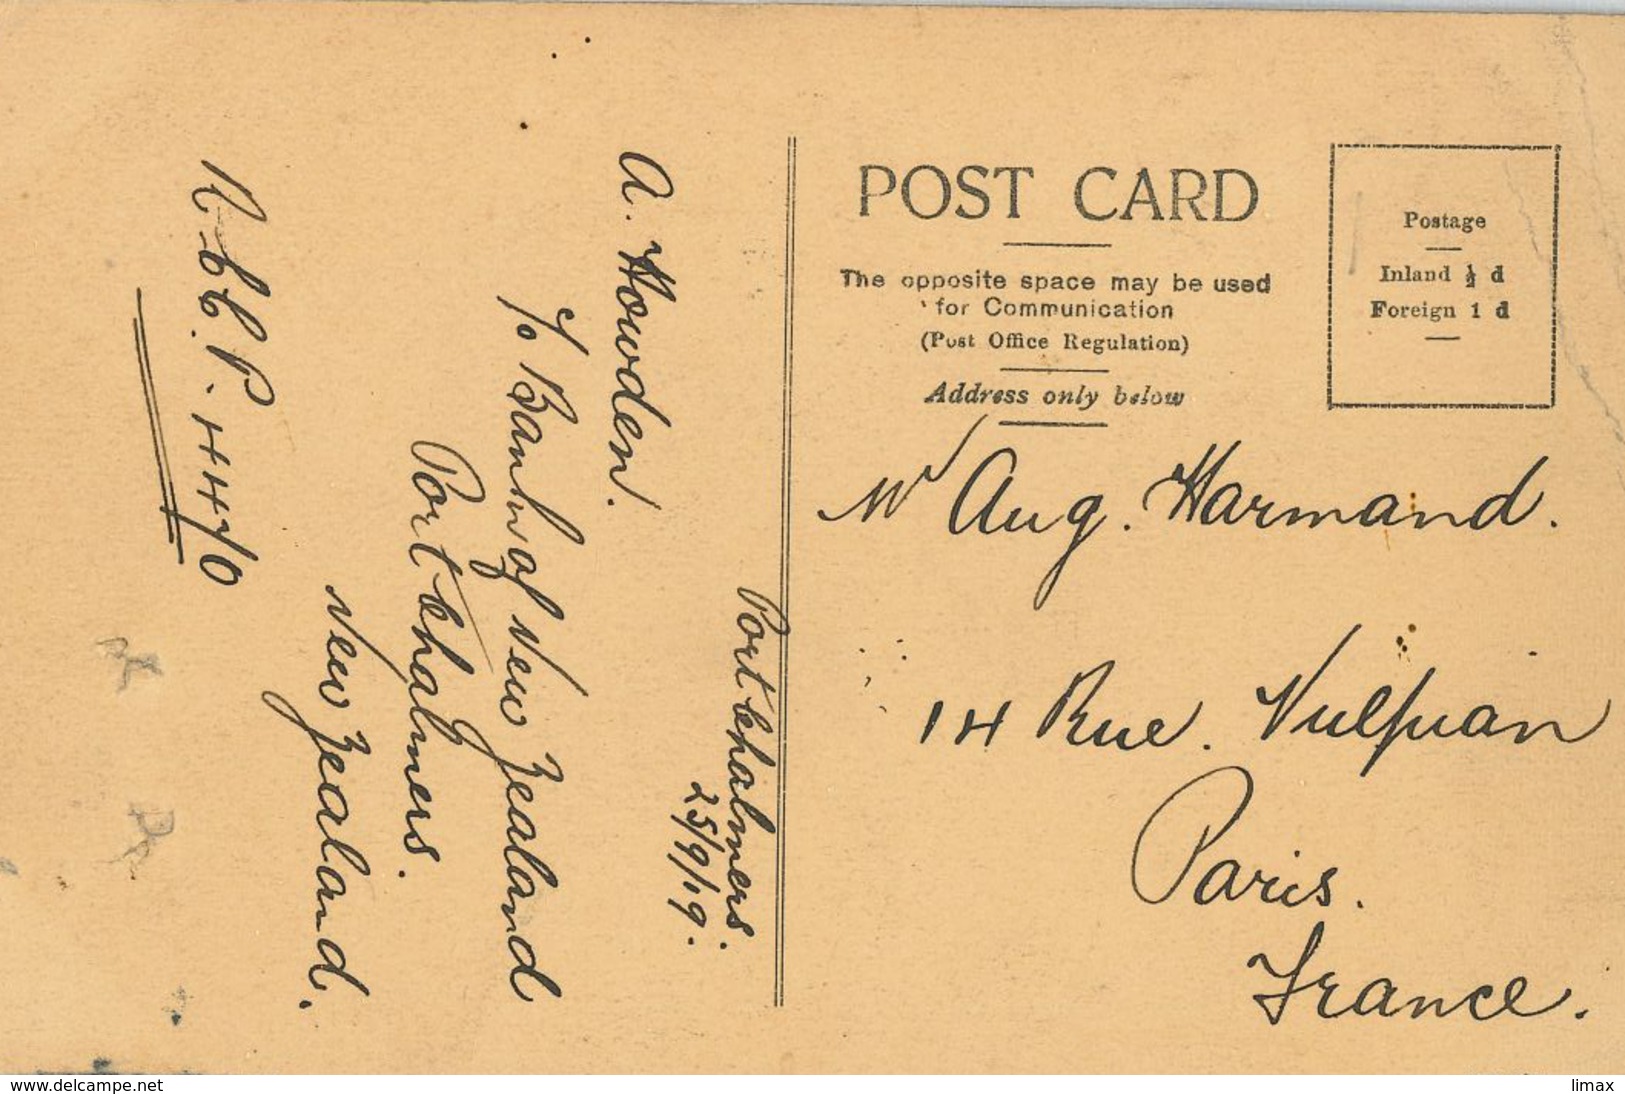 Port Chalmers.
25/9/19.
A. Howden.
c/o Bank of New Zealand
Port Chalmers.
New Zealand.
POST CARD
The opposite space may be used
for Communication
(Post Office Regulation)
Address only below
Postage
Inland ½ d
Foreign 1 d
Mr Aug. Harmand.
14 Rue. Vulpian
Paris.
France.
www.delcampe.net
limax